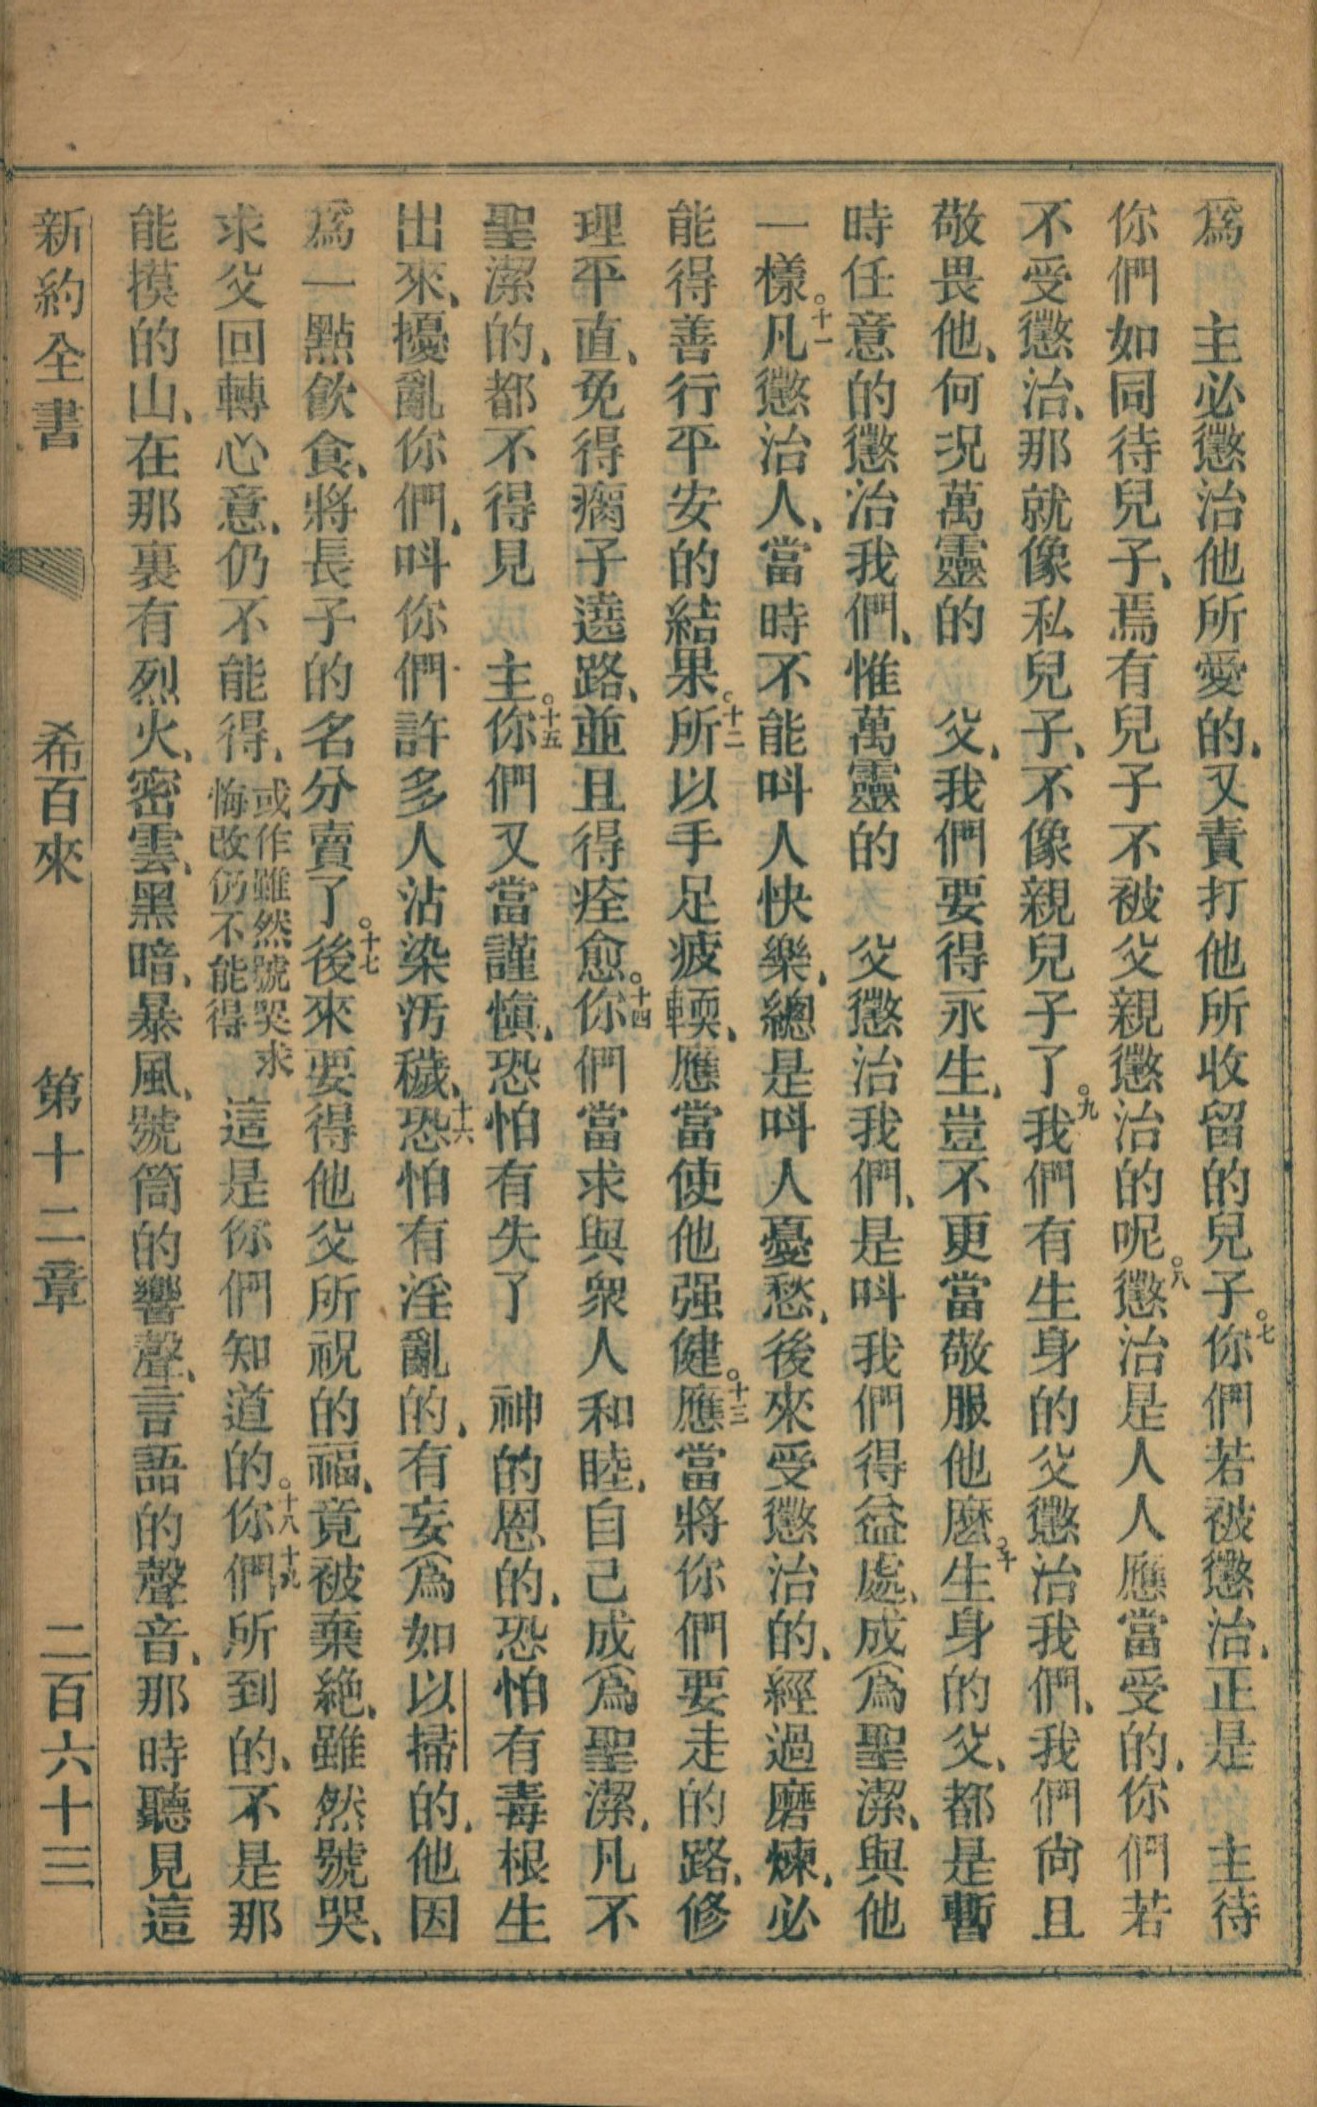 爲　主必懲治他所愛的、又責打他所收留的兒子。七你們若被懲治、正是　主待
你們如同待兒子、焉有兒子不被父親懲治的呢。八懲治是人人應當受的、你們若
不受懲治、那就像私兒子、不像親兒子了。九我們有生身的父懲治我們、我們尙且
敬畏他、何況萬靈的　父、我們要得永生、豈不更當敬服他麽。十生身的父、都是暫
時任意的懲治我們、惟萬靈的　父懲治我們、是呌我們得益處、成爲聖潔、與他
一樣。十一凡懲治人、當時不能呌人快樂、總是呌人憂愁、後來受懲治的、經過磨煉、必
能得善行平安的結果。十二所以手足疲輭、應當使他强健。十三應當將你們要走的路、修
理平直、免得瘸子遶路、並且得痊愈。十四你們當求與衆人和睦、自己成爲聖潔、凡不
聖潔的、都不得見　主。十五你們又當謹愼、恐怕有失了　神的恩的、恐怕有毒根生
出來、擾亂你們、呌你們許多人沾染汚穢、十六恐怕有淫亂的、有妄爲如以掃的、他因
爲一點飮食、將長子的名分賣了。十七後來要得他父所祝的福、竟被棄絶、雖然號哭、
求父回轉心意、仍不能得、或作雖然號哭求悔改仍不能得　這是你們知道的。十八十九你們所到的、不是那
能摸的山、在那裏有烈火、密雲、黑暗、暴風、號筒的響聲、言語的聲音、那時聽見這
新約全書　希百來　第十二章　二百六十三